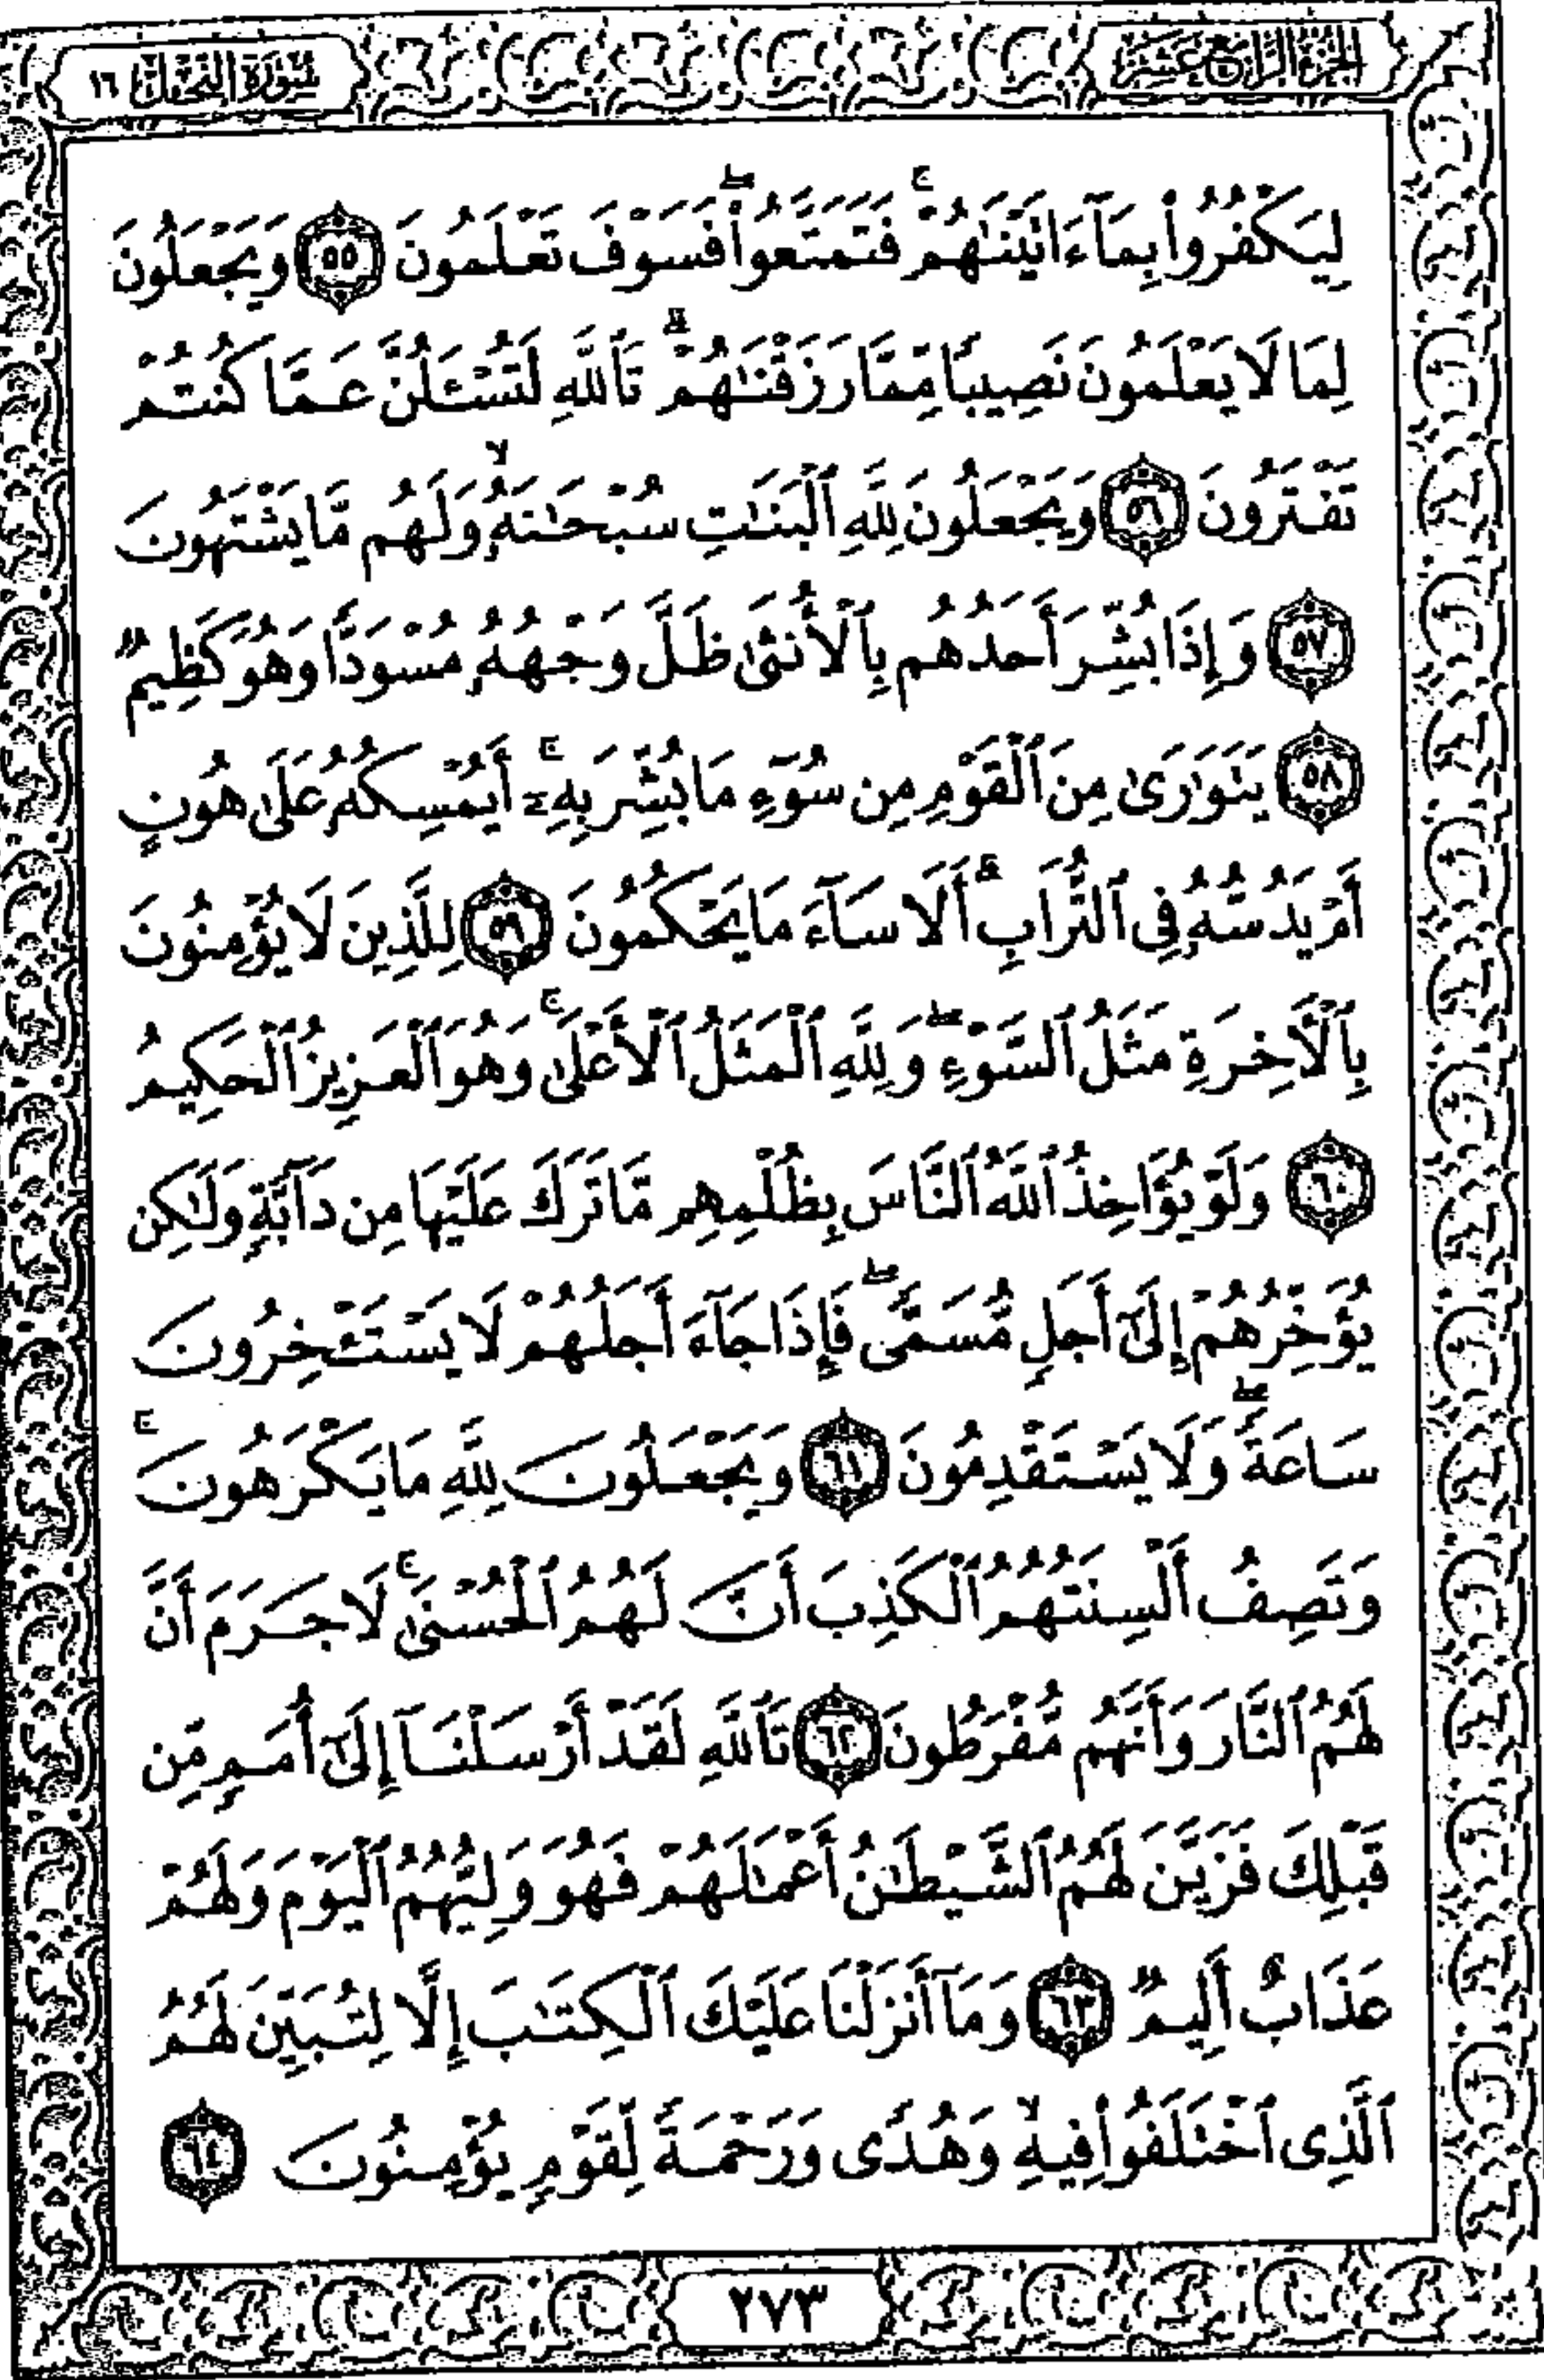 الجزء الرابع عشر
سورة النحل ١٦
لِيَكْفُرُوا۟ بِمَآ ءَاتَيْنَٰهُمْ ۚ فَتَمَتَّعُوا۟ ۖ فَسَوْفَ تَعْلَمُونَ ٥٥ وَيَجْعَلُونَ
لِمَا لَا يَعْلَمُونَ نَصِيبًا مِّمَّا رَزَقْنَٰهُمْ ۗ تَٱللَّهِ لَتُسْـَٔلُنَّ عَمَّا كُنتُمْ
تَفْتَرُونَ ٥٦ وَيَجْعَلُونَ لِلَّهِ ٱلْبَنَٰتِ سُبْحَٰنَهُۥ ۙ وَلَهُم مَّا يَشْتَهُونَ
٥٧ وَإِذَا بُشِّرَ أَحَدُهُم بِٱلْأُنثَىٰ ظَلَّ وَجْهُهُۥ مُسْوَدًّا وَهُوَ كَظِيمٌ
٥٨ يَتَوَٰرَىٰ مِنَ ٱلْقَوْمِ مِن سُوٓءِ مَا بُشِّرَ بِهِۦٓ ۚ أَيُمْسِكُهُۥ عَلَىٰ هُونٍ
أَمْ يَدُسُّهُۥ فِى ٱلتُّرَابِ ۗ أَلَا سَآءَ مَا يَحْكُمُونَ ٥٩ لِلَّذِينَ لَا يُؤْمِنُونَ
بِٱلْـَٔاخِرَةِ مَثَلُ ٱلسَّوْءِ ۖ وَلِلَّهِ ٱلْمَثَلُ ٱلْأَعْلَىٰ ۚ وَهُوَ ٱلْعَزِيزُ ٱلْحَكِيمُ
٦٠ وَلَوْ يُؤَاخِذُ ٱللَّهُ ٱلنَّاسَ بِظُلْمِهِم مَّا تَرَكَ عَلَيْهَا مِن دَآبَّةٍ وَلَٰكِن
يُؤَخِّرُهُمْ إِلَىٰٓ أَجَلٍ مُّسَمًّى ۖ فَإِذَا جَآءَ أَجَلُهُمْ لَا يَسْتَـْٔخِرُونَ
سَاعَةً ۖ وَلَا يَسْتَقْدِمُونَ ٦١ وَيَجْعَلُونَ لِلَّهِ مَا يَكْرَهُونَ ۚ
وَتَصِفُ أَلْسِنَتُهُمُ ٱلْكَذِبَ أَنَّ لَهُمُ ٱلْحُسْنَىٰ ۚ لَا جَرَمَ أَنَّ
لَهُمُ ٱلنَّارَ وَأَنَّهُم مُّفْرَطُونَ ٦٢ تَٱللَّهِ لَقَدْ أَرْسَلْنَآ إِلَىٰٓ أُمَمٍ مِّن
قَبْلِكَ فَزَيَّنَ لَهُمُ ٱلشَّيْطَٰنُ أَعْمَٰلَهُمْ فَهُوَ وَلِيُّهُمُ ٱلْيَوْمَ وَلَهُمْ
عَذَابٌ أَلِيمٌ ٦٣ وَمَآ أَنزَلْنَا عَلَيْكَ ٱلْكِتَٰبَ إِلَّا لِتُبَيِّنَ لَهُمُ
ٱلَّذِى ٱخْتَلَفُوا۟ فِيهِ ۙ وَهُدًى وَرَحْمَةً لِّقَوْمٍ يُؤْمِنُونَ ٦٤
٢٧٣